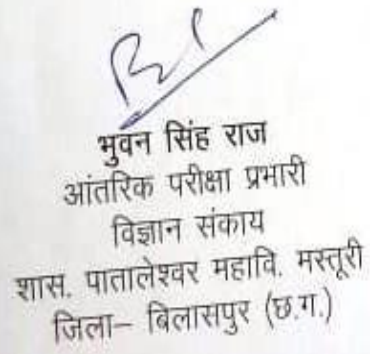 भुवन सिंह राज
आंतरिक परीक्षा प्रभारी
विज्ञान संकाय
शास. पातालेश्वर महावि. मस्तूरी
जिला– बिलासपुर (छ.ग.)